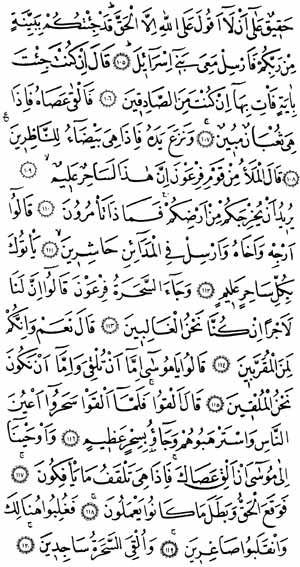 حَقِيقٌ عَلَىٰ أَنْ لَا أَقُولَ عَلَى اللهِ إِلَّا الْحَقَّ قَدْ جِئْتُكُمْ بِبَيِّنَةٍ
مِنْ رَبِّكُمْ فَأَرْسِلْ مَعِيَ بَنِي إِسْرَائِيلَ ﴿١٠٥﴾ قَالَ إِنْ كُنْتَ جِئْتَ
بِآيَةٍ فَأْتِ بِهَا إِنْ كُنْتَ مِنَ الصَّادِقِينَ ﴿١٠٦﴾ فَأَلْقَىٰ عَصَاهُ فَإِذَا
هِيَ ثُعْبَانٌ مُبِينٌ ﴿١٠٧﴾ وَنَزَعَ يَدَهُ فَإِذَا هِيَ بَيْضَاءُ لِلنَّاظِرِينَ
﴿١٠٨﴾ قَالَ الْمَلَأُ مِنْ قَوْمِ فِرْعَوْنَ إِنَّ هَٰذَا لَسَاحِرٌ عَلِيمٌ ﴿١٠٩﴾
يُرِيدُ أَنْ يُخْرِجَكُمْ مِنْ أَرْضِكُمْ فَمَاذَا تَأْمُرُونَ ﴿١١٠﴾ قَالُوا
أَرْجِهْ وَأَخَاهُ وَأَرْسِلْ فِي الْمَدَائِنِ حَاشِرِينَ ﴿١١١﴾ يَأْتُوكَ
بِكُلِّ سَاحِرٍ عَلِيمٍ ﴿١١٢﴾ وَجَاءَ السَّحَرَةُ فِرْعَوْنَ قَالُوا إِنَّ لَنَا
لَأَجْرًا إِنْ كُنَّا نَحْنُ الْغَالِبِينَ ﴿١١٣﴾ قَالَ نَعَمْ وَإِنَّكُمْ
لَمِنَ الْمُقَرَّبِينَ ﴿١١٤﴾ قَالُوا يَا مُوسَىٰ إِمَّا أَنْ تُلْقِيَ وَإِمَّا أَنْ نَكُونَ
نَحْنُ الْمُلْقِينَ ﴿١١٥﴾ قَالَ أَلْقُوا فَلَمَّا أَلْقَوْا سَحَرُوا أَعْيُنَ
النَّاسِ وَاسْتَرْهَبُوهُمْ وَجَاؤُ بِسِحْرٍ عَظِيمٍ ﴿١١٦﴾ وَأَوْحَيْنَا
إِلَىٰ مُوسَىٰ أَنْ أَلْقِ عَصَاكَ فَإِذَا هِيَ تَلْقَفُ مَا يَأْفِكُونَ ﴿١١٧﴾
فَوَقَعَ الْحَقُّ وَبَطَلَ مَا كَانُوا يَعْمَلُونَ ﴿١١٨﴾ فَغُلِبُوا هُنَالِكَ
وَانْقَلَبُوا صَاغِرِينَ ﴿١١٩﴾ وَأُلْقِيَ السَّحَرَةُ سَاجِدِينَ ﴿١٢٠﴾